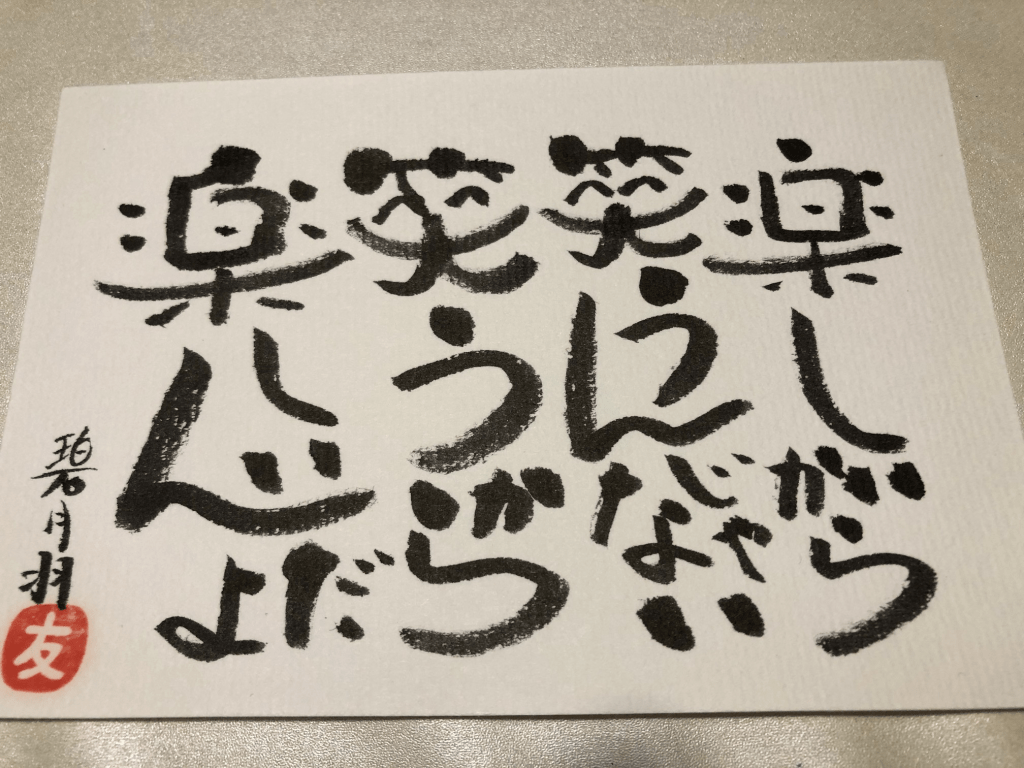 楽しいから
笑うんじゃない
笑うから
楽しいんだよ
碧月羽
友